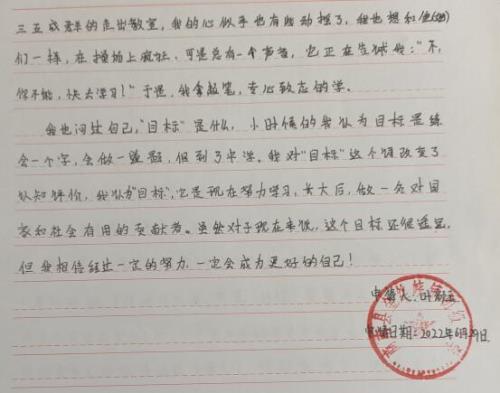 三五成群的走出教室，我的心似乎也有点动摇了，我也想和他
们一样，在操场上疯狂，可是总有一个声音，它正在告诫我："不，
你不能，快去学习！"于是，我拿起笔，专心致志的学。
我也问过自己，"目标"是什么，小时候的我认为目标是练
会一个字，会做一道题，但到了中学。我对"目标"这个词改变了
认知评价，我认为"目标"，它是现在努力学习，长大后，做一名对国
家和社会有用的贡献者。虽然对于现在来说，这个目标还很遥远，
但我相信经过一定的努力，一定会成为更好的自己！
申请人：叶
申请日期：2022年6月29日